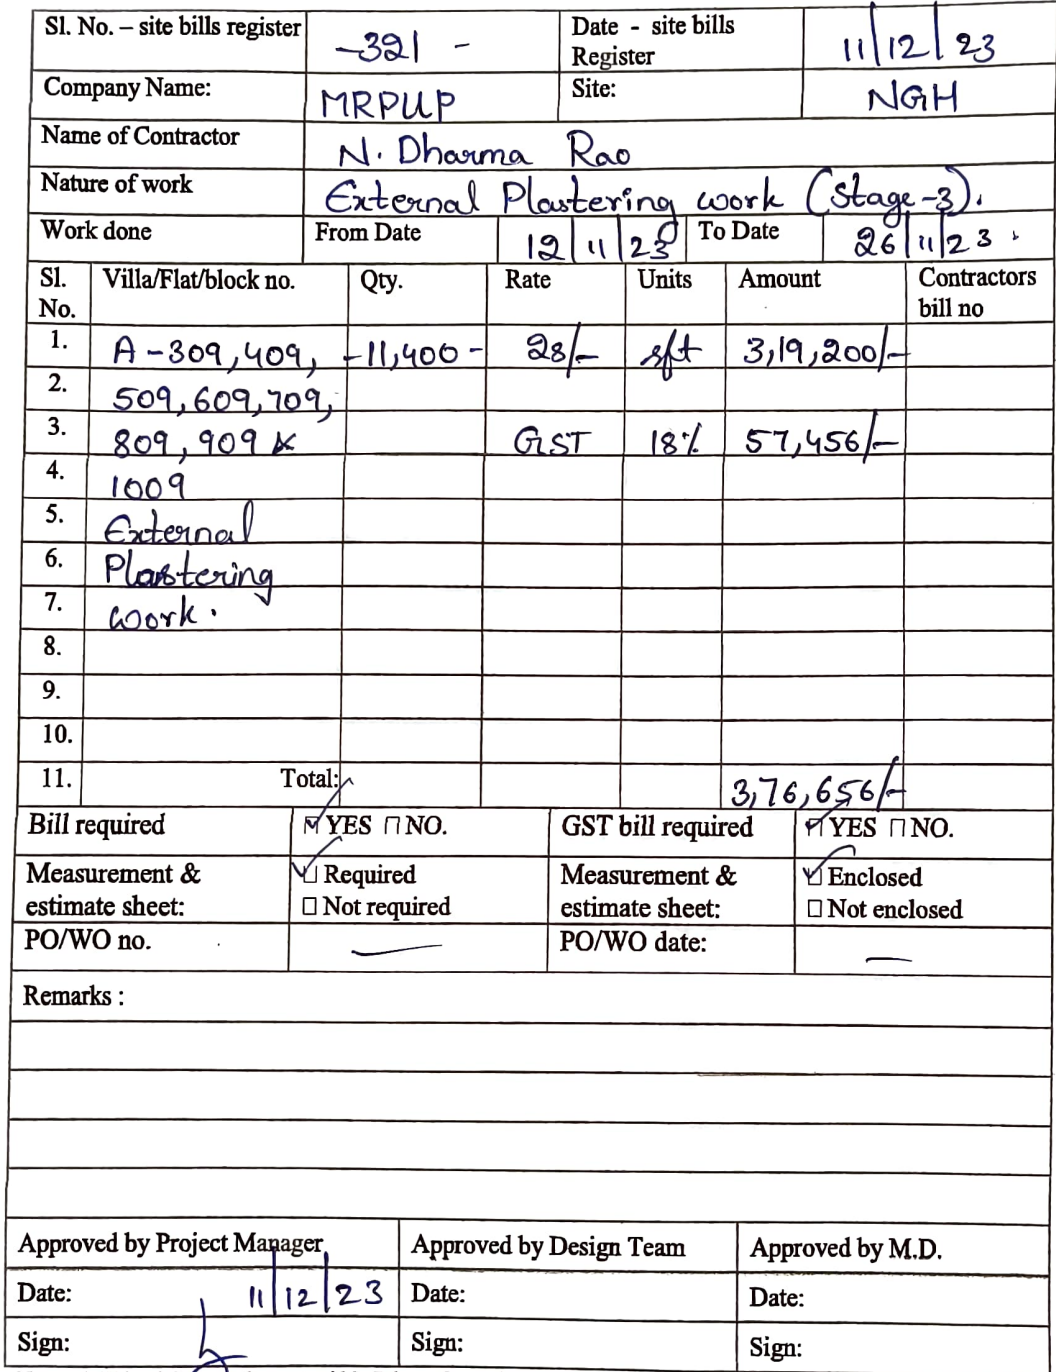 Sl. No. – site bills register -321 - Date - site bills Register 11/12/23
Company Name: MRPUP Site: NGH
Name of Contractor N. Dharma Rao
Nature of work External Plastering work (Stage-3).
Work done From Date 12/11/23 To Date 26/11/23
Sl. No. Villa/Flat/block no. Qty. Rate Units Amount Contractors bill no
1. A-309,409, -11,400- 28/- sft 3,19,200/-
2. 509,609,709,
3. 809,909 & GST 18% 57,456/-
4. 1009
5. External
6. Plastering
7. work.
8.
9.
10.
11. Total: 3,76,656/-
Bill required YES NO. GST bill required YES NO.
Measurement & estimate sheet: Required Not required Measurement & estimate sheet: Enclosed Not enclosed
PO/WO no. — PO/WO date: —
Remarks :
Approved by Project Manager Approved by Design Team Approved by M.D.
Date: 11/12/23 Date: Date:
Sign: Sign: Sign: